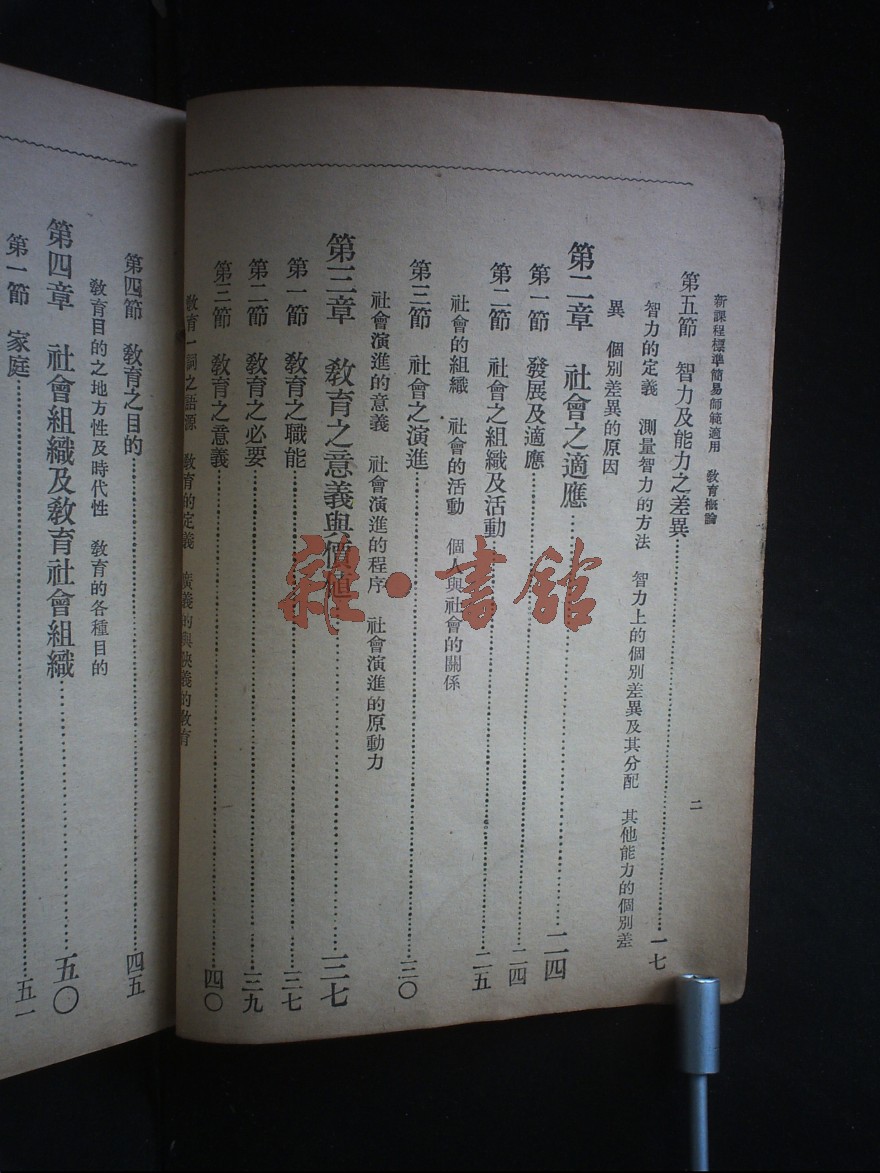 新課程標準簡易師範適用　教育概論
二
第五節　智力及能力之差異……一七
智力的定義　測量智力的方法　智力上的個別差異及其分配　其他能力的個別差
異　個別差異的原因
第二章　社會之適應……二四
第一節　發展及適應……二四
第二節　社會之組織及活動……二五
社會的組織　社會的活動　個人與社會的關係
第三節　社會之演進……三〇
社會演進的意義　社會演進的程序　社會演進的原動力
第三章　教育之意義與價值……三七
第一節　教育之職能……三七
第二節　教育之必要……三九
第三節　教育之意義……四〇
教育一詞之語源　教育的定義　廣義的與狹義的教育
第四節　教育之目的……四五
教育目的之地方性及時代性　教育的各種目的
第四章　社會組織及教育社會組織……五〇
第一節　家庭……五一
雜·書館